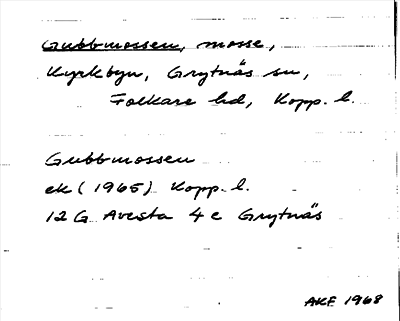 Gubbmossen, mosse,
Kyrkbyn, Grytnäs sn,
Folkare hd, Kopp. l.
Gubbmossen
ek (1965) Kopp. l.
12 G Avesta 4 e Grytnäs
AKE 1968